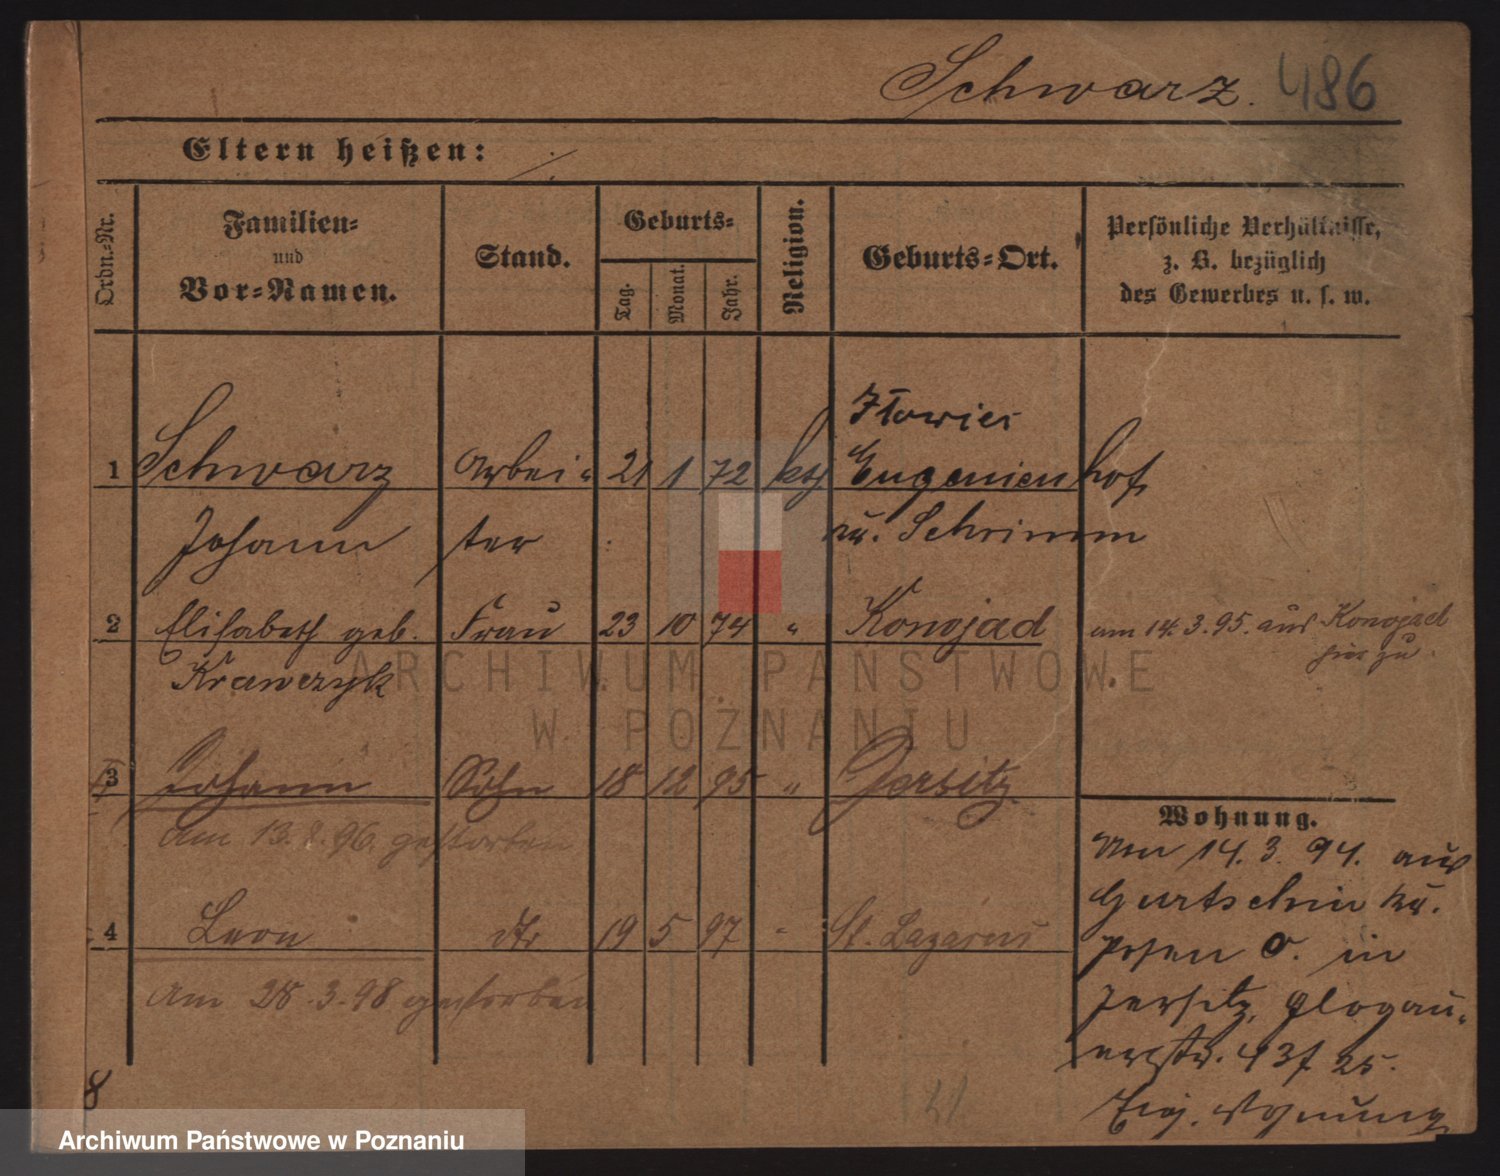 Schwarz. 486
Eltern heißen:
Ordn.-Nr.
Familien-
und
Vor-Namen.
Stand.
Geburts-
Tag.
Monat.
Jahr.
Religion.
Geburts-Ort.
Persönliche Verhältnisse,
z. B. bezüglich
des Gewerbes u. s. w.
Iłowiec
1 Schwarz Arbei- 21 1 72 kth Eugenienhof
Johann ter Kr. Schrimm
2 Elisabeth geb. Frau 23 10 74 " Konojad am 14.3.95. aus Konojad
Krawczyk hier zu.
3 Johann Sohn 18 12 95 " Jersitz
am 13. 8. 96. gestorben
Wohnung.
4 Leon dto 19 5 97 " St. Lazarus
am 28.3.98 gestorben
Am 14.3.94. aus
Gurtschin Kr.
Posen O. in
Jersitz, Glogau-
erstr. 43 f 25.
Eig. Wohnung
8
21
ARCHIWUM PAŃSTWOWE
W POZNANIU
Archiwum Państwowe w Poznaniu